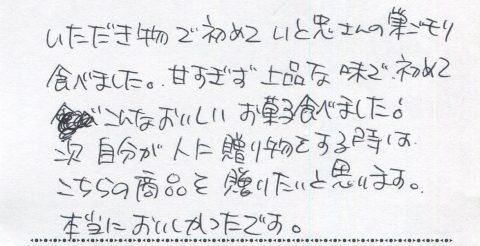 いただき物で初めていと忠さんの巣ごもり
食べました。甘すぎず上品な味で、初めて
こんなおいしいお菓子食べました。
次自分が人に贈り物をする時は
こちらの商品を贈りたいと思います。
本当においしかったです。